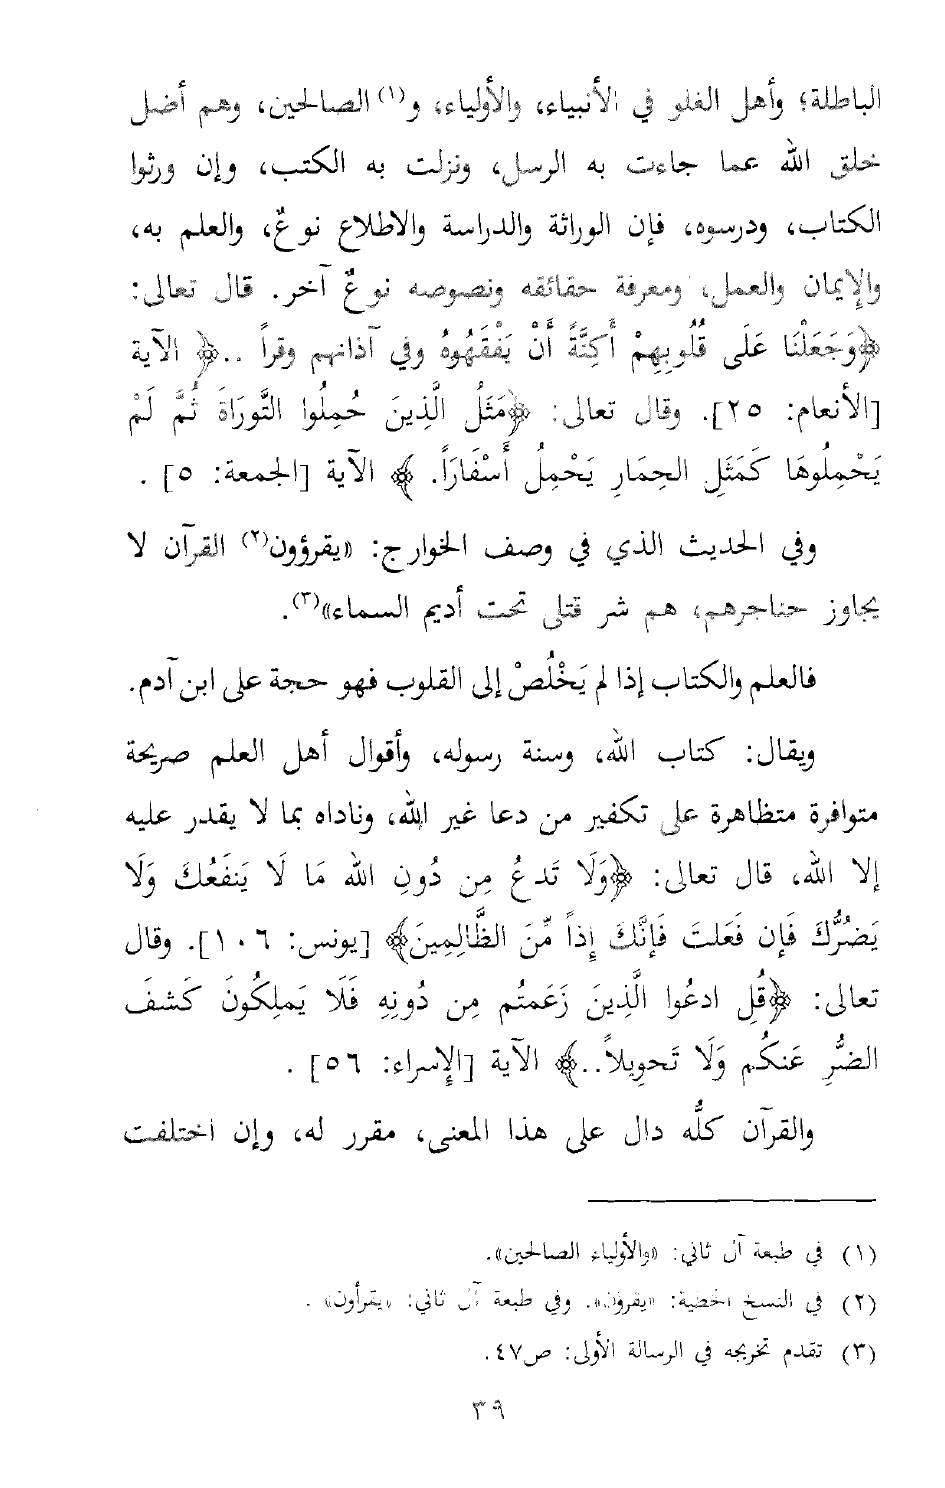 الباطلة؛ وأهل الغلو في الأنبياء، والأولياء، و(١) الصالحين، وهم أضل
خلق الله عما جاءت به الرسل، ونزلت به الكتب، وإن ورثوا
الكتاب، ودرسوه، فإن الوراثة والدراسة والاطلاع نوعٌ، والعلم به،
والإيمان والعمل، ومعرفة حقائقه ونصوصه نوعٌ آخر. قال تعالى:
﴿وَجَعَلْنَا عَلَى قُلُوبِهِمْ أَكِنَّةً أَنْ يَفْقَهُوهُ وفي آذانهم وقراً ..﴾ الآية
[الأنعام: ٢٥]. وقال تعالى: ﴿مَثَلُ الَّذِينَ حُمِلُوا التَّورَاةَ ثُمَّ لَمْ
يَحْمِلُوهَا كَمَثَلِ الحِمَارِ يَحْمِلُ أَسْفَارَاً. ﴾ الآية [الجمعة: ٥] .
وفي الحديث الذي في وصف الخوارج: «يقرؤون(٢) القرآن لا
يجاوز حناجرهم، هم شر قتلى تحت أديم السماء»(٣).
فالعلم والكتاب إذا لم يَخْلُصْ إلى القلوب فهو حجة على ابن آدم.
ويقال: كتاب الله، وسنة رسوله، وأقوال أهل العلم صريحة
متوافرة متظاهرة على تكفير من دعا غير الله، وناداه بما لا يقدر عليه
إلا الله، قال تعالى: ﴿وَلَا تَدعُ مِن دُونِ الله مَا لَا يَنفَعُكَ وَلَا
يَضُرُّكَ فَإِن فَعَلتَ فَإِنَّكَ إِذاً مِّنَ الظَّالِمِينَ﴾ [يونس: ١٠٦]. وقال
تعالى: ﴿قُلِ ادعُوا الَّذِينَ زَعَمتُم مِن دُونِهِ فَلَا يَملِكُونَ كَشفَ
الضُّرِ عَنكُم وَلَا تَحوِيلاً..﴾ الآية [الإسراء: ٥٦] .
والقرآن كلُّه دال على هذا المعنى، مقرر له، وإن اختلفت
(١) في طبعة آل ثاني: «والأولياء الصالحين».
(٢) في النسخ الخطية: «يقرؤن». وفي طبعة آل ثاني: «يقرأون» .
(٣) تقدم تخريجه في الرسالة الأولى: ص٤٧.
٣٩